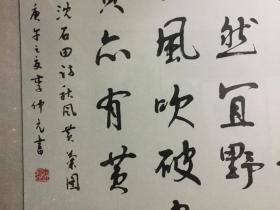 然宜野
風吹破
亦有黄
沈石田詩秋風黄葉图
庚午之夏李仲元書